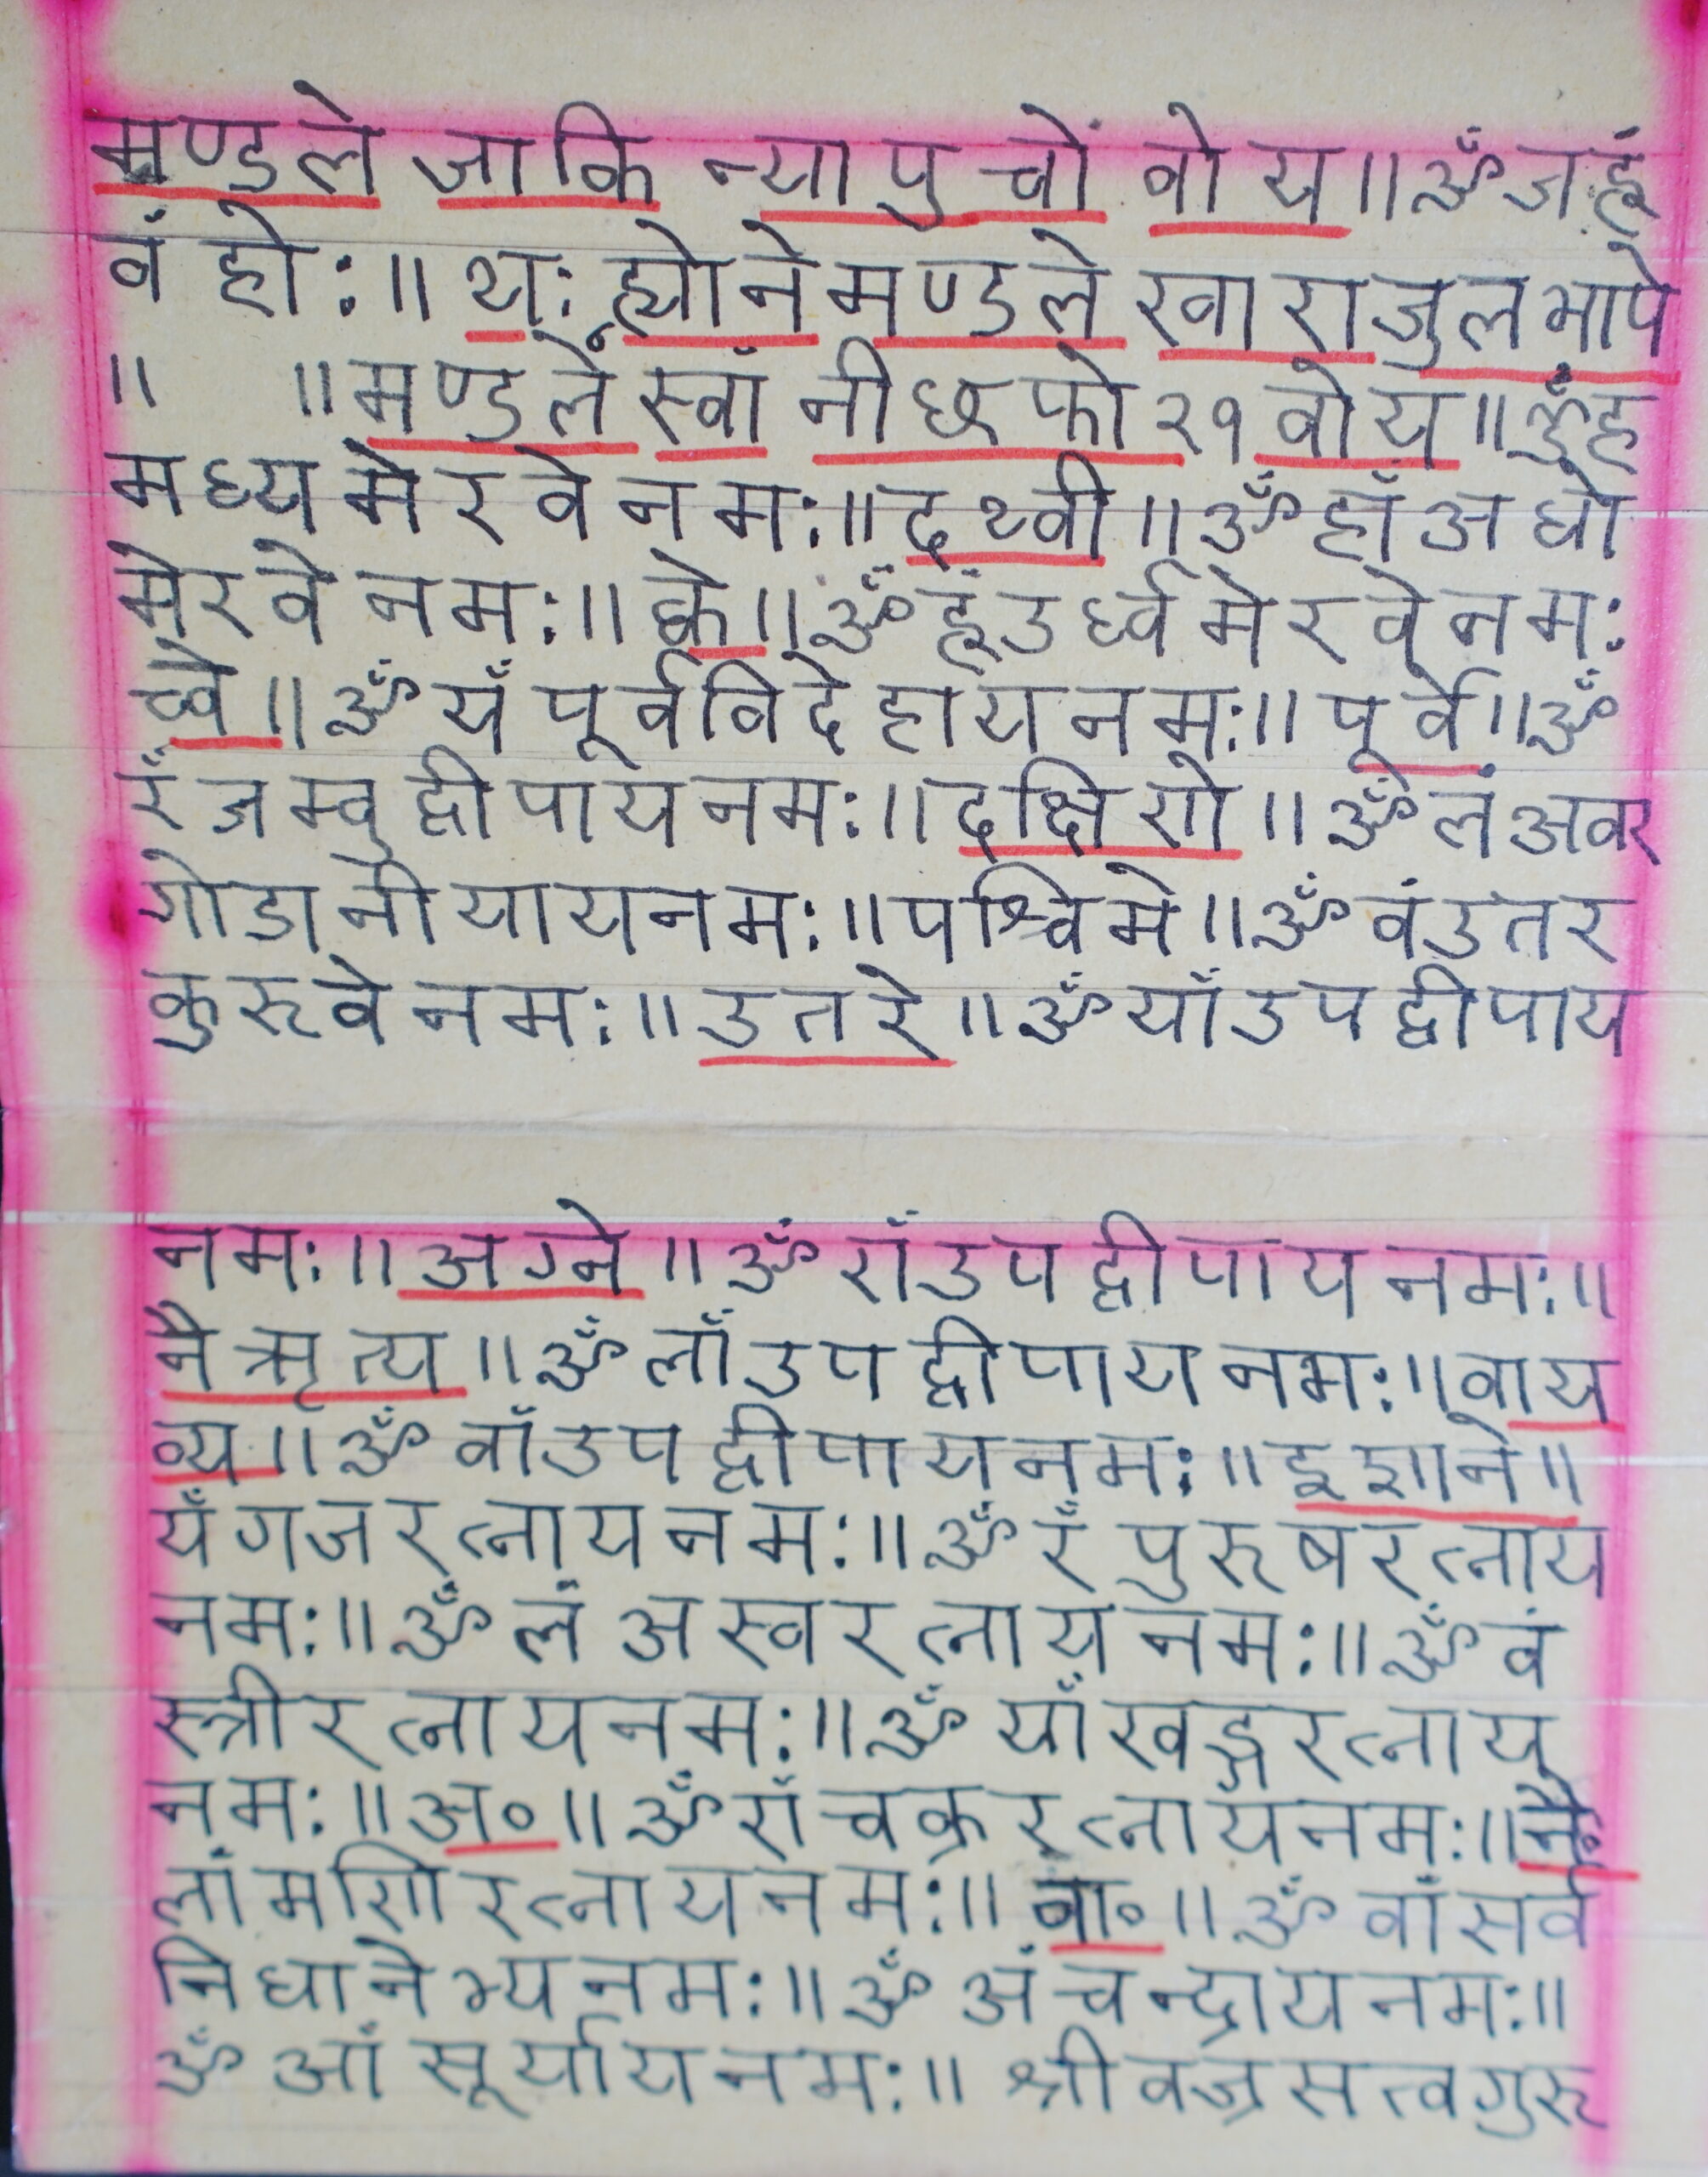 मण्डले जाकि न्यापुचों वोय॥ ॐ जः हूं
वं होः॥ थः ह्योने मण्डले खाराजुलभापे
॥ ॥ मण्डलें स्वाँ नीछफो २१ वोय॥ ॐ हं
मध्यमेरवे नमः॥ दथ्वी॥ ॐ हाँ अधो
मेरवे नमः॥ क्वे॥ ॐ हूं उर्ध्वमेरवे नमः
च्वे॥ ॐ यँ पूर्वविदेहाय नमः॥ पूर्वे॥ ॐ
रँ जम्वुद्वीपाय नमः॥ दक्षिणे॥ ॐ लं अवर
गोडानीयाय नमः॥ पश्चिमे॥ ॐ वं उतर
कुरुवे नमः॥ उतरे॥ ॐ याँ उपद्वीपाय
नमः॥ अग्ने॥ ॐ राँ उपद्वीपाय नमः॥
नैऋत्य॥ ॐ लाँ उपद्वीपाय नमः॥ वाय
व्य॥ ॐ वाँ उपद्वीपाय नमः॥ इशाने॥
यँ गजरत्नाय नमः॥ ॐ रँ पुरुषरत्नाय
नमः॥ ॐ लं अस्वरत्नाय नमः॥ ॐ वं
स्त्रीरत्नाय नमः॥ ॐ याँ खड्गरत्नाय
नमः॥ अ०॥ ॐ राँ चक्ररत्नाय नमः॥ नै०
लां मणिरत्नाय नमः॥ वा०॥ ॐ वां सर्व
निधानेभ्य नमः॥ ॐ अं चन्द्राय नमः॥
ॐ आं सूर्याय नमः॥ श्रीवज्रसत्वगुरु